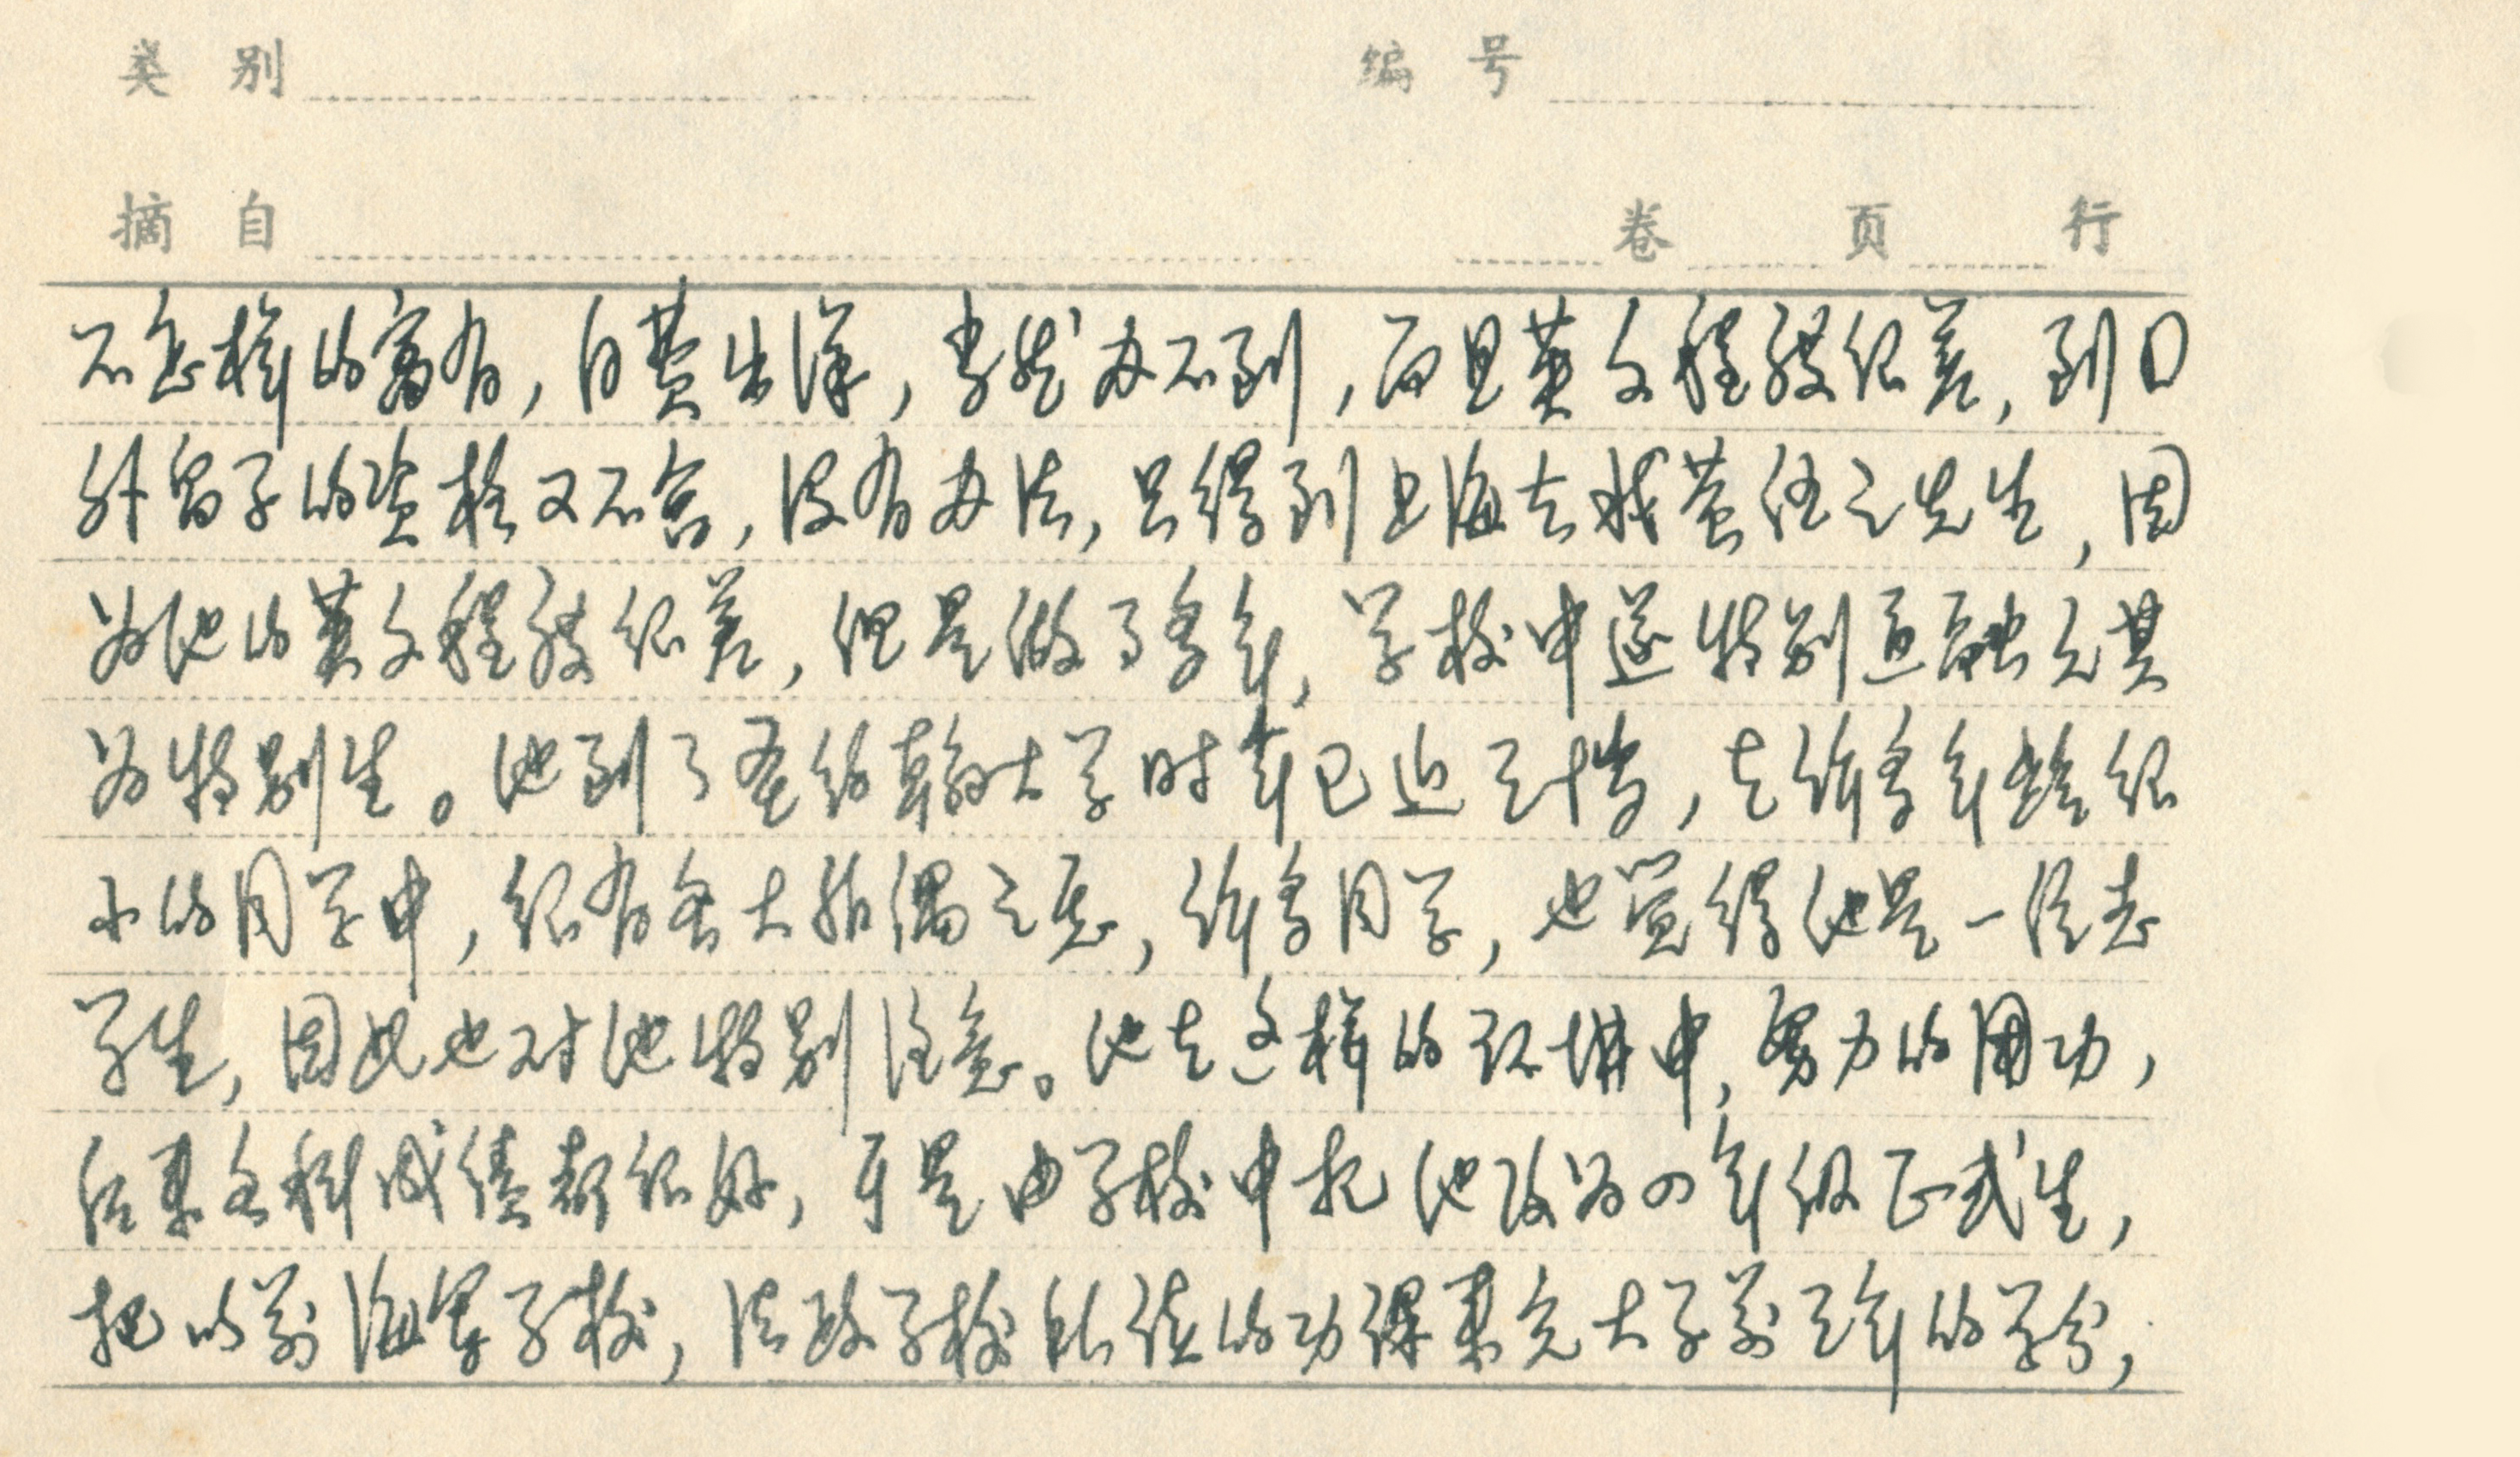 类别 编号
摘自 卷 页 行
不怎样的富有，自费出洋，当然办不到，而且英文程度很差，到口
外留学的资格又不合，没有办法，只得到上海去找黄任之先生，因
为他的英文程度很差，但是做了多年，学校中遂特别通融允其
为特别生。他到了圣约翰大学时年已近三十岁，在许多年龄很
小的同学中，很有老大相偶之感，许多同学，也觉得他是一位老
学生，因此也对他特别注意。他在这样的环境中，努力的用功，
结果各科成绩都很好，于是由学校中把他改为四年级正式生，
把以前海军学校，法政学校所读的功课来充大学前三年的学分，